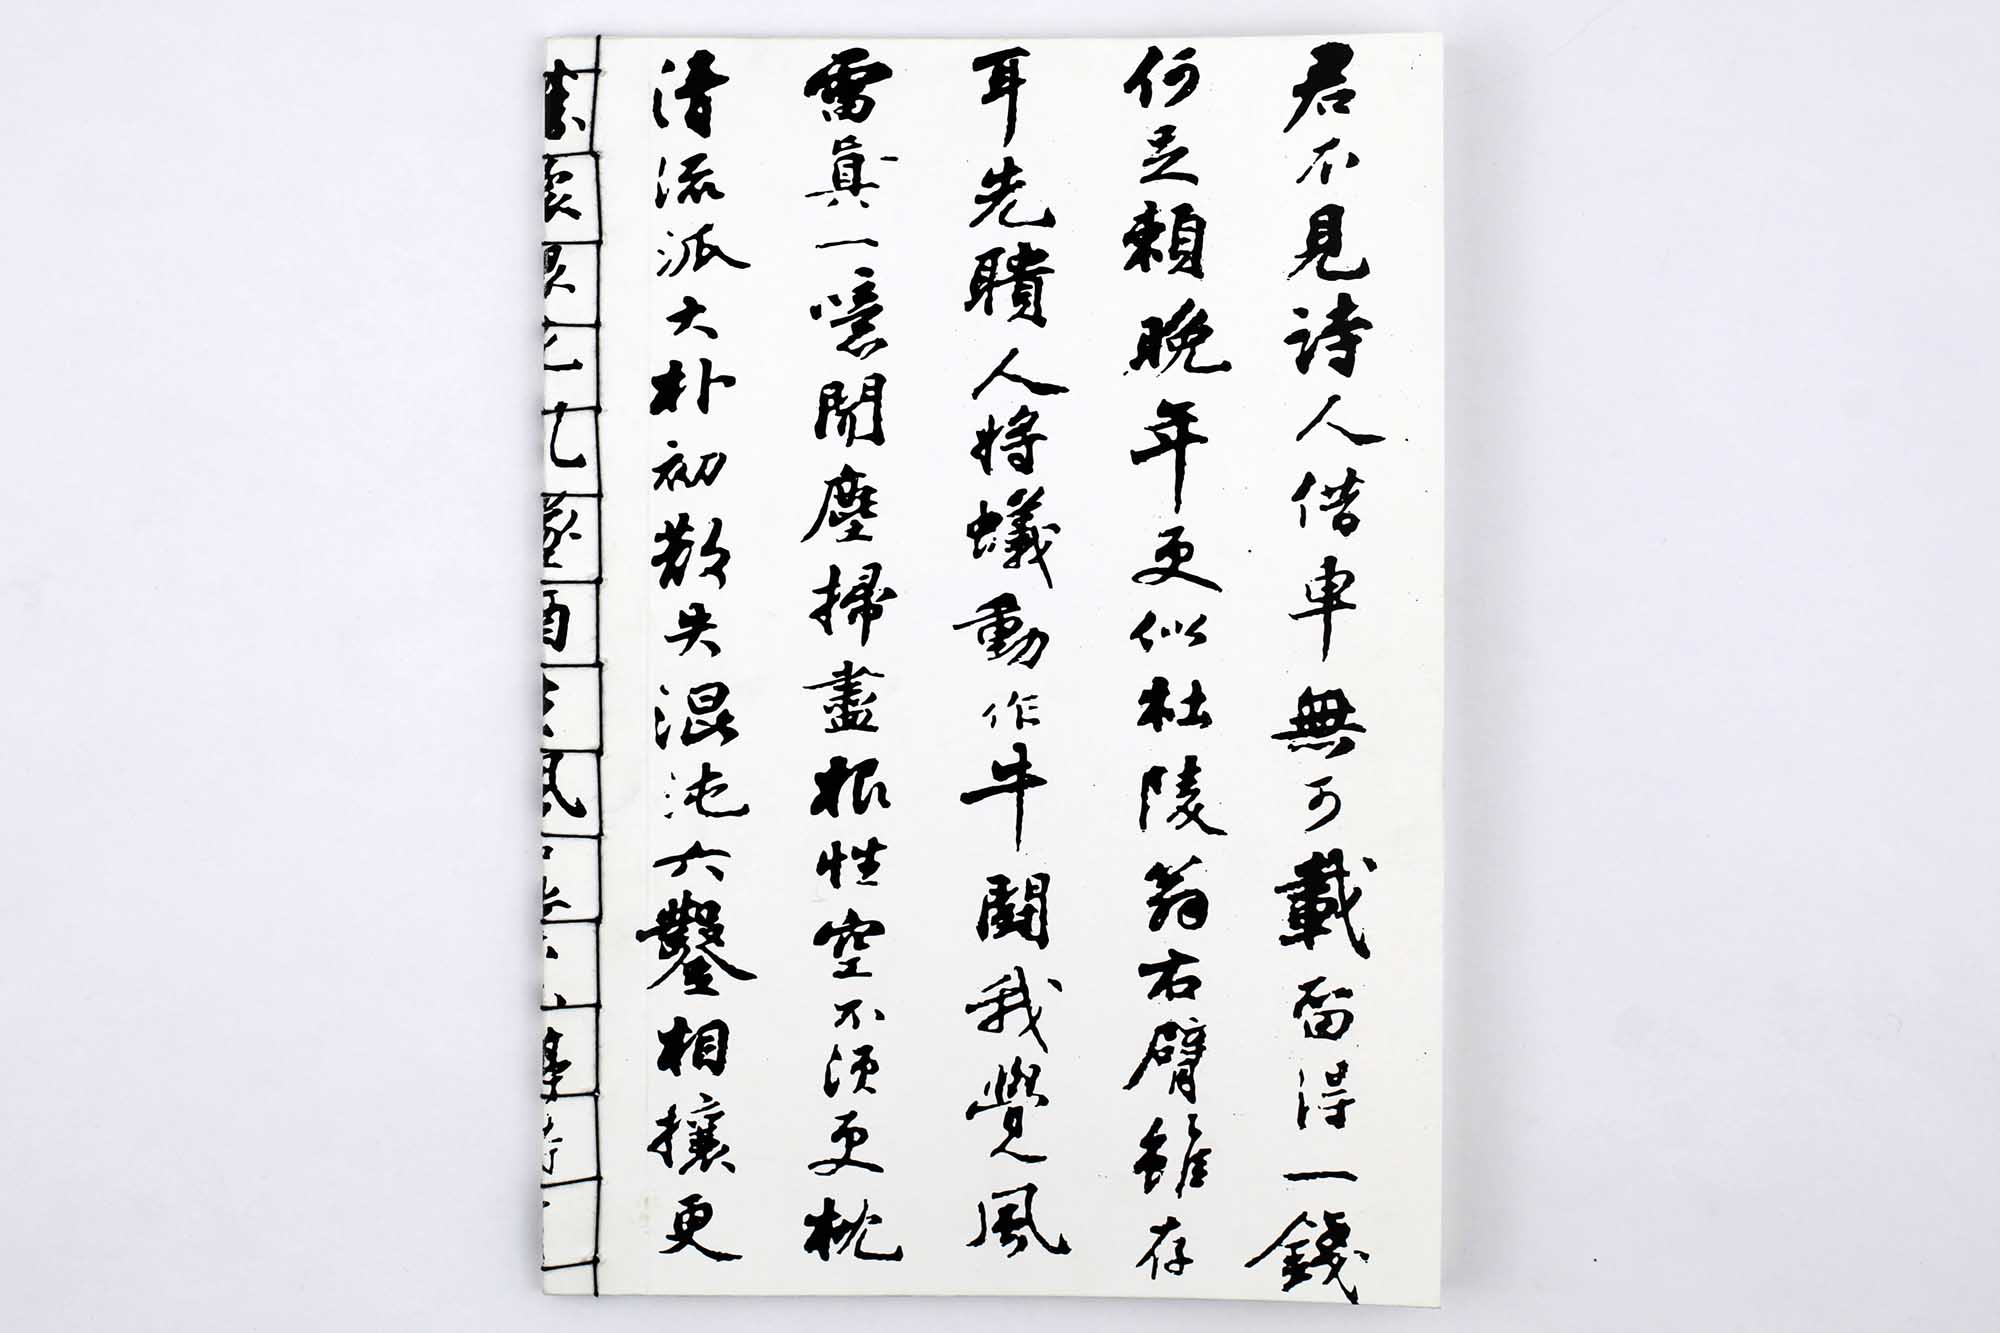 君不見詩人借車無可載留得一錢
何足賴晚年更似杜陵翁右臂雖存
耳先聵人將蟻動作牛鬪我覺風
雷眞一噫聞塵掃盡根性空不須更枕
清流派大朴初散失混沌六鑿相攘更